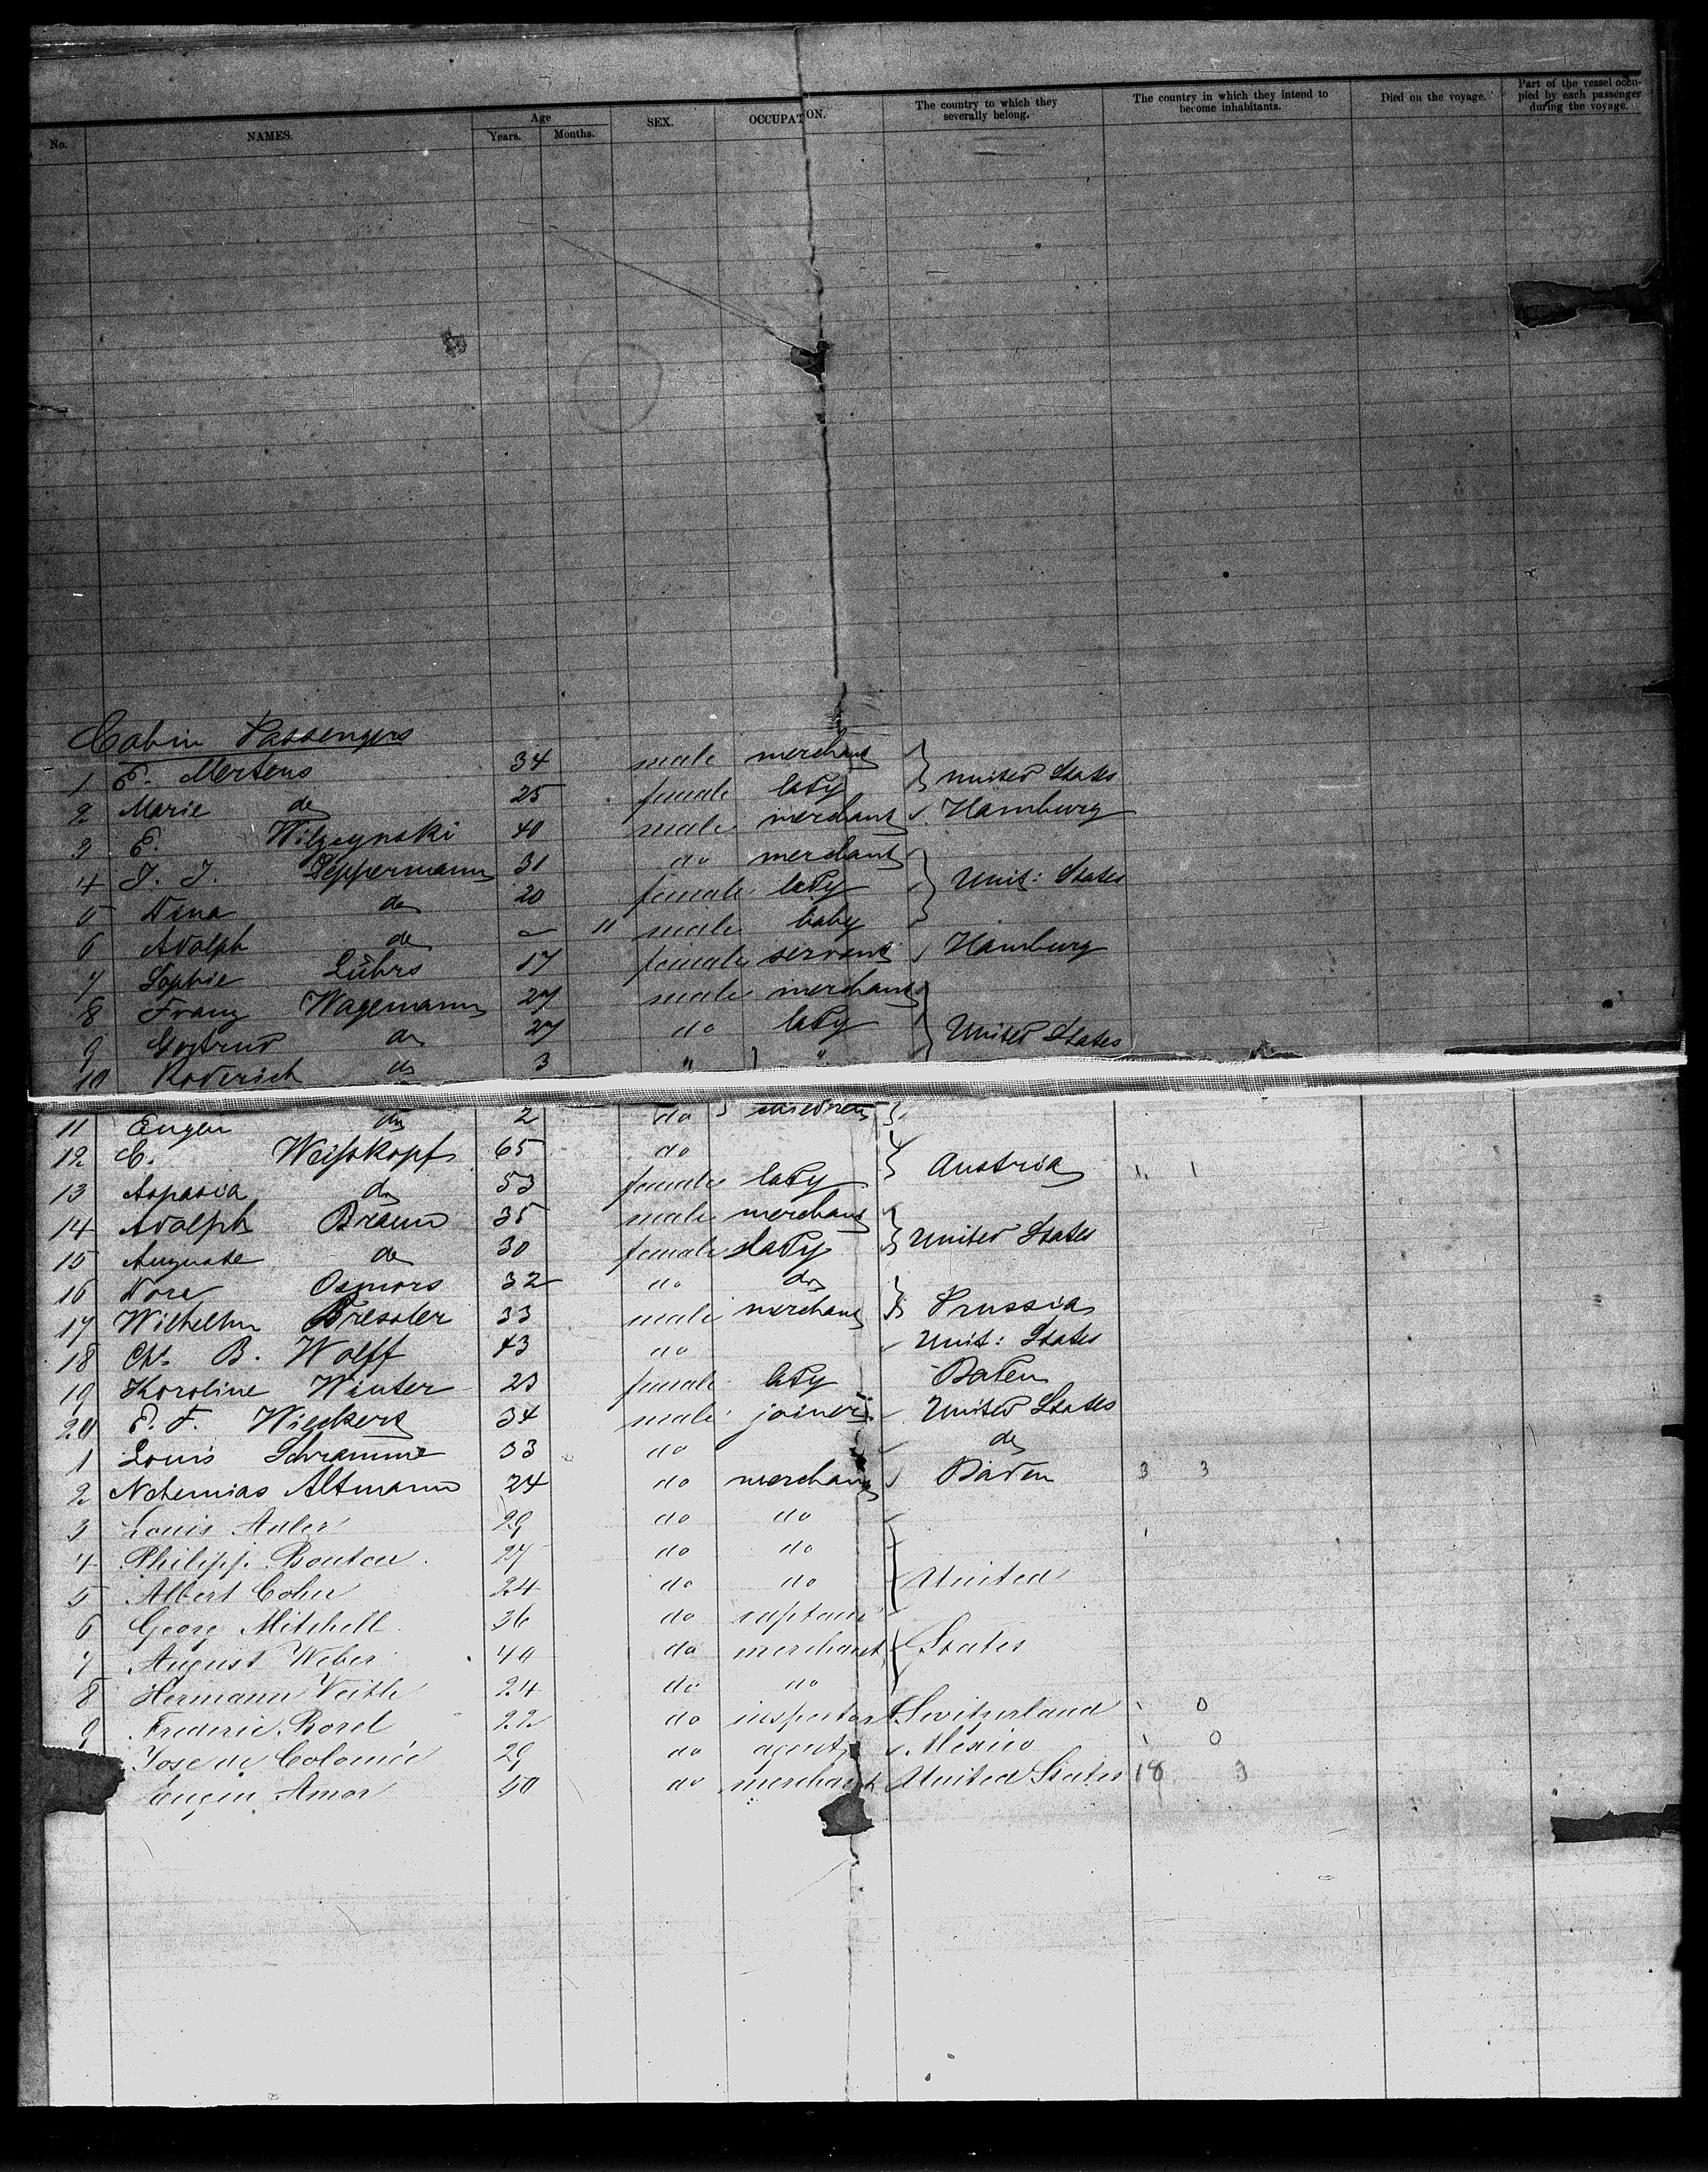 No. NAMES. Age Years. Months. SEX. OCCUPATION. The country to which they severally belong. The country in which they intend to become inhabitants. Died on the voyage. Part of the vessel occupied by each passenger during the voyage.
Cabin Passengers
1 E. Mertens 34 male merchant } United States
2 Marie do 25 female lady
3 E. Wilzcynski 40 male merchant Hamburg
4 J. J. Peppermann 31 do merchant } Unit: States
5 Nina do 20 female lady
6 Adolph do – 11 male baby
7 Sophie Lührs 17 female servant Hamburg
8 Franz Wagemann 27 male merchant } United States
9 Gertrud do 27 do lady
10 Roderich do 3 " } "
11 Eugen do 2 do } children }
12 C. Weißkopf 65 do } Austria 1 1
13 Aspasia do 53 female lady
14 Adolph Braun 35 male merchant } United States
15 Auguste do 30 female lady
16 Nora Osmors 32 do do
17 Wilhelm Bressler 33 male merchant } Prussia
18 Chs. B. Wolff 43 do Unit: States
19 Karoline Winter 23 female lady Baden
20 E. F. Wieckers 34 male joiner United States
1 Louis Schramme 33 do do
2 Nehemias Altmann 24 do merchant Baden 3 3
3 Louis Adler 29 do do
4 Philipp Bouton 27 do do
5 Albert Cohn 24 do do { United
6 Georg Mitchell 36 do captain
7 August Weber 40 do merchant { States
8 Hermann Veith 24 do do
9 Frederic Borel 22 do inspector Switzerland 1 0
Jose de Colomée 29 do agent Mexico 1 0
Eugen Amor 50 do merchant United States 18 3